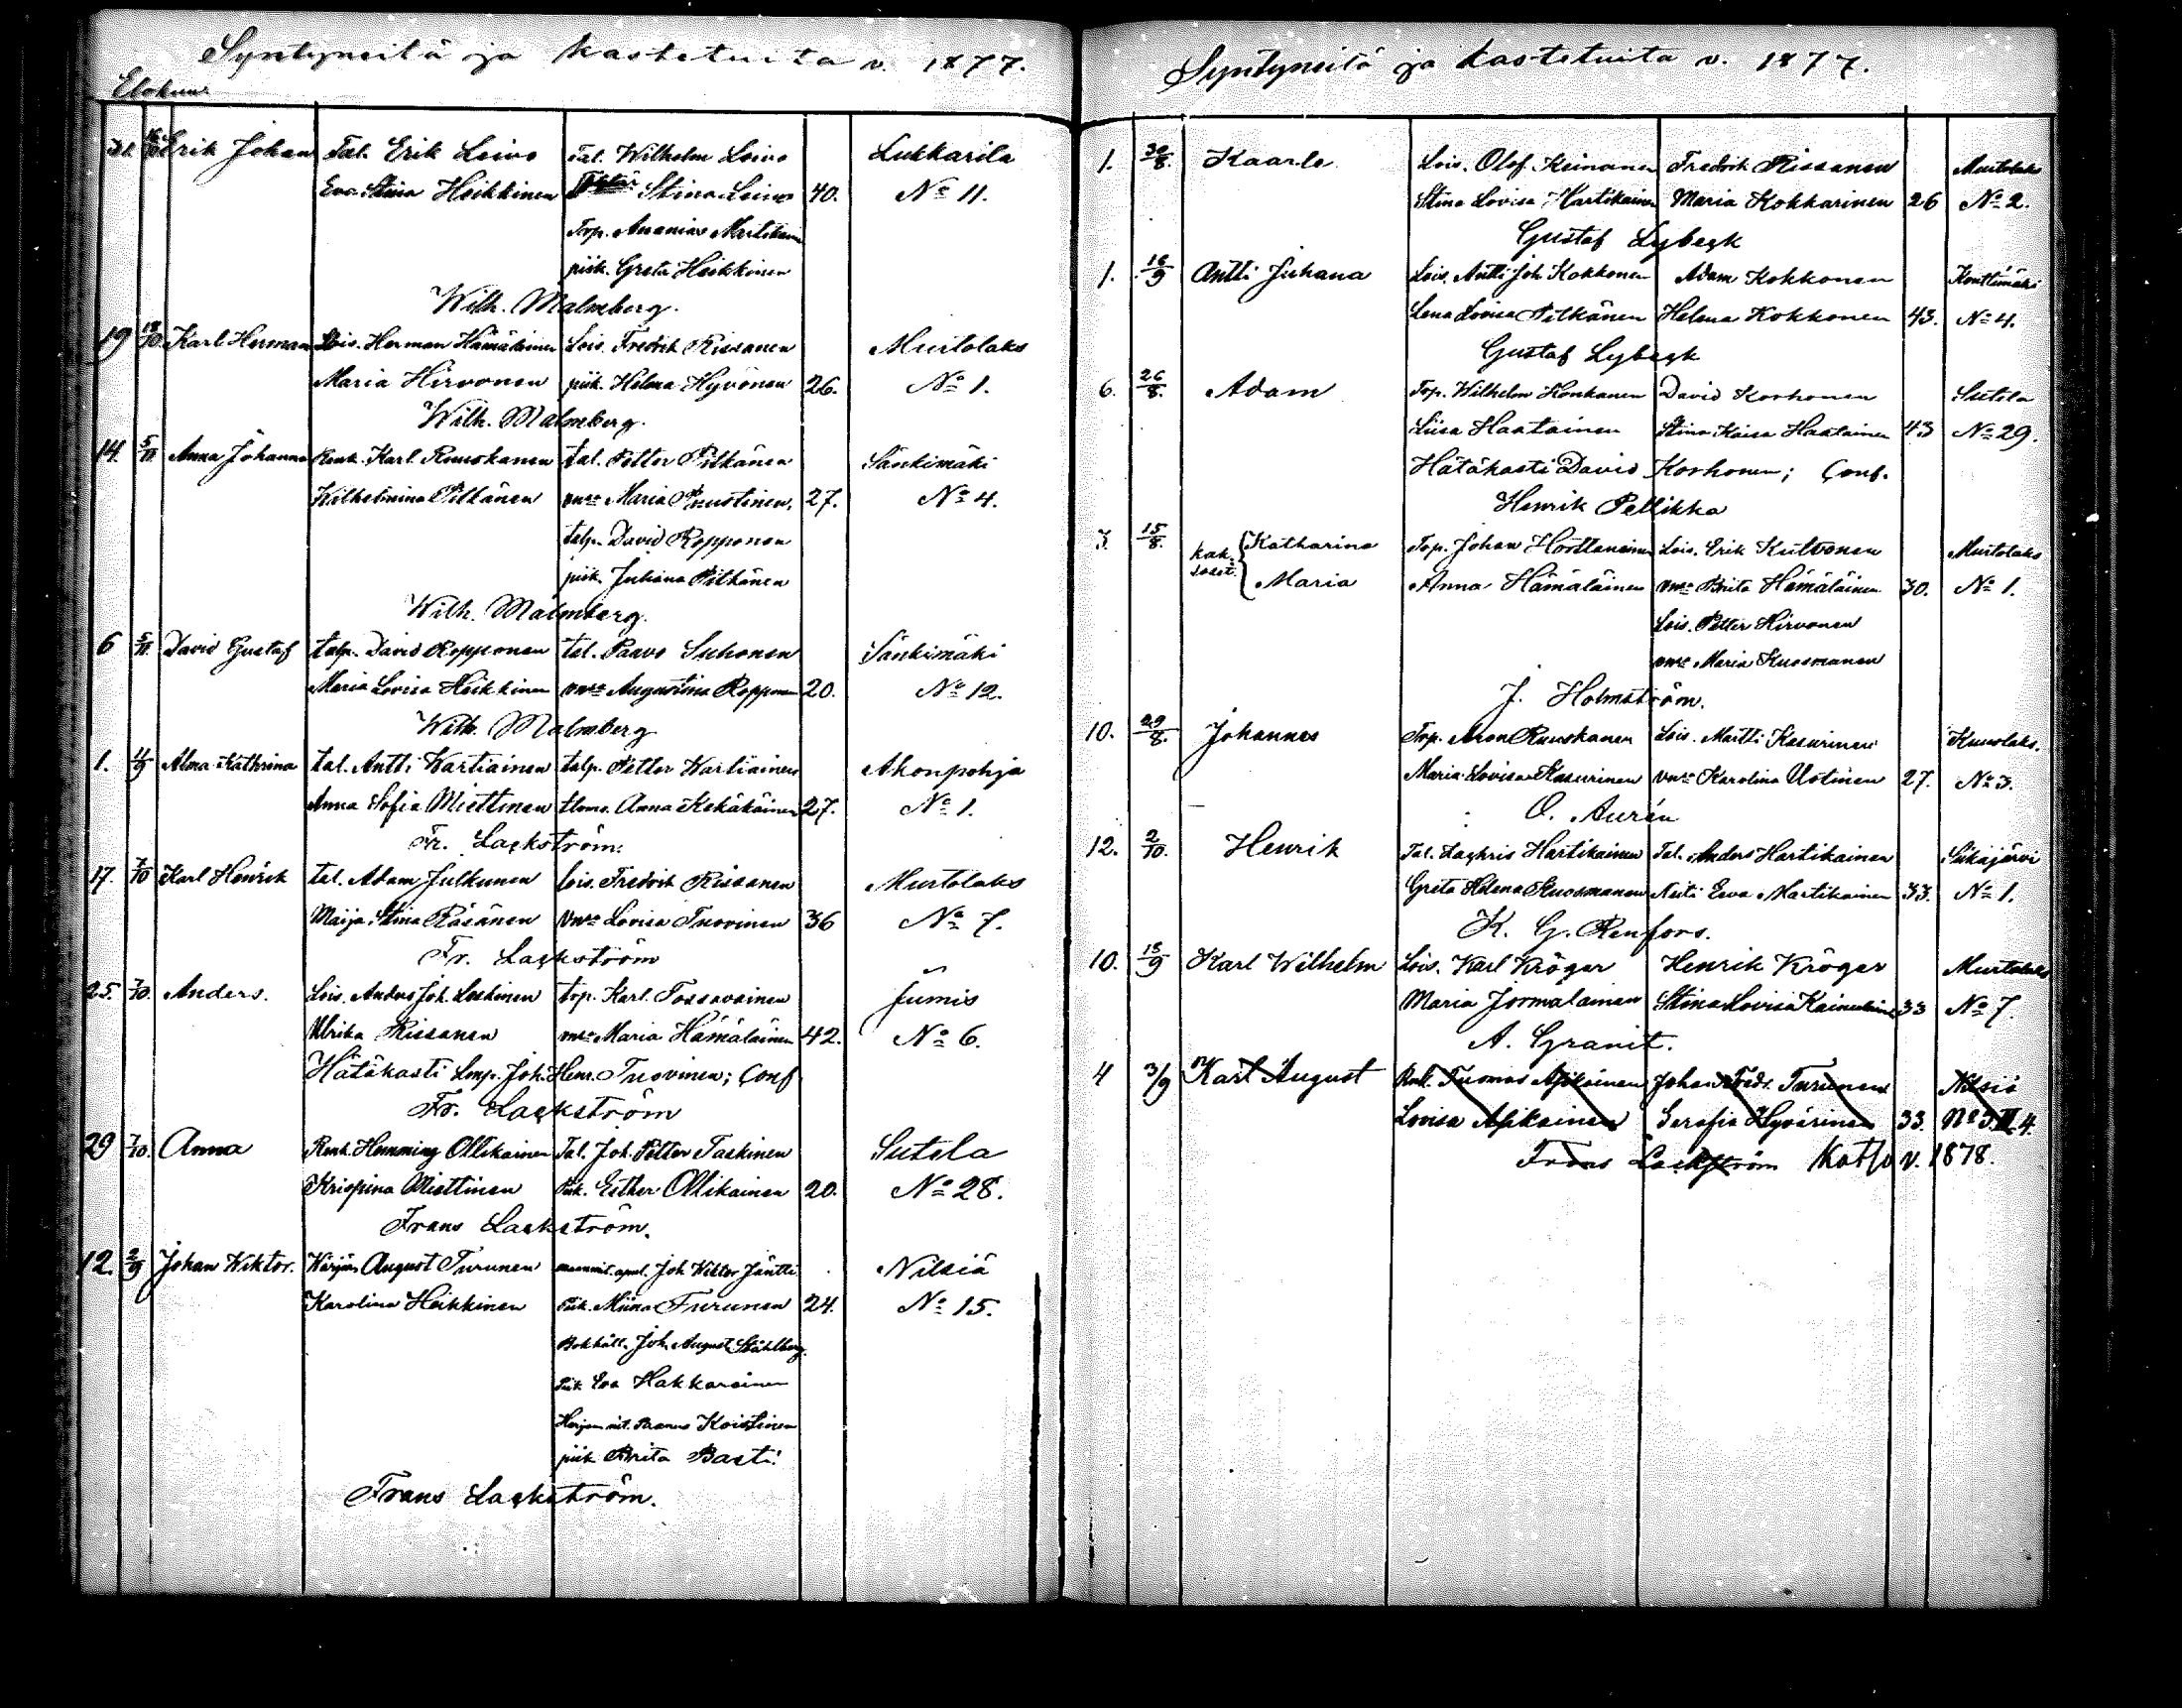 Syntyneitä ja kastetuita v. 1877.
Elokuu
31. 16/10 Erik Johan Tal. Erik Loivo Tal. Wilhelm Loivo Lukkarila
Eva Stina Heikkinen Stina Loivo 40. No 11.
Trp. Ananias Martikain
piik. Greta Heikkinen
Wilh. Malmberg.
19 18/10 Karl Herman Lois. Herman Hämäläinen Lois. Fredrik Rissanen Muitolaks
Maria Hirvonen piik. Helena Hyvönen 26. No 1.
Wilh. Malmberg.
14. 5/11 Anna Johanna Renk. Karl Ruuskanen tal. Petter Pitkänen Sänkimäki
Wilhelmina Pitkänen vmo Maria Puustinen, 27. No 4.
talp. David Ropponen
piik. Juliana Pitkänen
Wilh. Malmberg.
6 5/11. David Gustaf talp. David Ropponen tal. Paavo Suhonen Sänkimäki
Maria Lovisa Heikkinen vmo Augustina Ropponen 20. No 12.
Wilh. Malmberg
1. 4/9 Alma Kathrina tal. Antti Kartiainen talp. Petter Kartiainen Akonpohja
Anna Sofia Miettinen Anna Kekäläinen 27. No 1.
Fr. Lackström.
17. 7/10 Karl Henrik tal. Adam Julkunen lois. Fredrik Rissanen Murtolaks
Maija Stina Räsänen vmo Lovisa Tuovinen 36 No 7.
Fr. Lackström
25. 7/10. Anders. Lois. Anders Joh. Leskinen trp. Karl Tossavainen Jumis
Ulrika Rissanen vmo Maria Hämäläinen 42. No 6.
Hätäkasti Lmp. Joh. Henr. Tuovinen; Conf
Fr. Lackström
29 7/10. Anna Renk. Hemming Ollikainen Tal. Joh. Petter Taskinen Sutela
Krispina Miettinen Piik. Esther Ollikainen 20. No 28.
Frans Lackström.
12. 2/9 Johan Wiktor. Karjur August Turunen maanmit. apul. Joh Wiktor Jäntti Nilsiä
Karolina Heikkinen Piik. Miina Turunen 24. No 15.
Bokhåll. Joh. August Ståhlberg.
Piik. Eva Hakkarainen
Koistinen
piik Brita Basti
Frans Lackström.
Syntyneitä ja kastetuita v. 1877.
1. 30/8. Kaarle Lois. Olof Keinanen Fredrik Rissanen Murtolaks
Stina Lovisa Hartikainen Maria Kokkarinen 26 No 2.
Gustaf Lybeck
1. 16/9 Antti Juhana Lois. Antti Joh. Kokkonen Adam Kokkonen Konttimäki
Lena Lovisa Pitkänen Helena Kokkonen 43. No 4.
Gustaf Lybeck
6. 26/8. Adam Trp. Wilhelm Honkanen David Korhonen Sutela
Liisa Haatainen Stina Kaisa Haatainen 43 No 29.
Hätäkasti David Korhonen; Conf.
Henrik Pellikka
3. 15/8. kaksoset. Katharina Trp. Johan Hoottanainen Lois. Erik Kutvonen Murtolaks
Maria Anna Hämäläinen vmo Brita Hämäläinen 30. No 1.
Lois. Petter Hirvonen
vmo Maria Kuosmanen
J. Holmström.
10. 29/8. Johannes Trp. Aron Ruuskanen Lois. Martti Kasurinen Kuuslaks.
Maria Lovisa Kasurinen vmo Karolina Uotinen 27. No 3.
O. Aurén
12. 2/10. Henrik Tal. Zachris Hartikainen Tal. Anders Hartikainen Siikajärvi
Greta Helena Kuosmanen Neiti Eeva Martikainen 33. No 1.
K. G. Renfors.
10. 15/9 Karl Wilhelm Lois. Karl Kröger Henrik Kröger Murtolaks
Maria Jormalainen Stina Lovisa Kainulainen 33 No 7.
A. Granit.
4 3/9 Karl August Renk. Tuomas Apkainen Johan Fredr. Turunen Nilsiä
Lovisa Apkainen Serafia Hyvärinen 33. No 3. 4.
Frans Lackström Katso v. 1878.